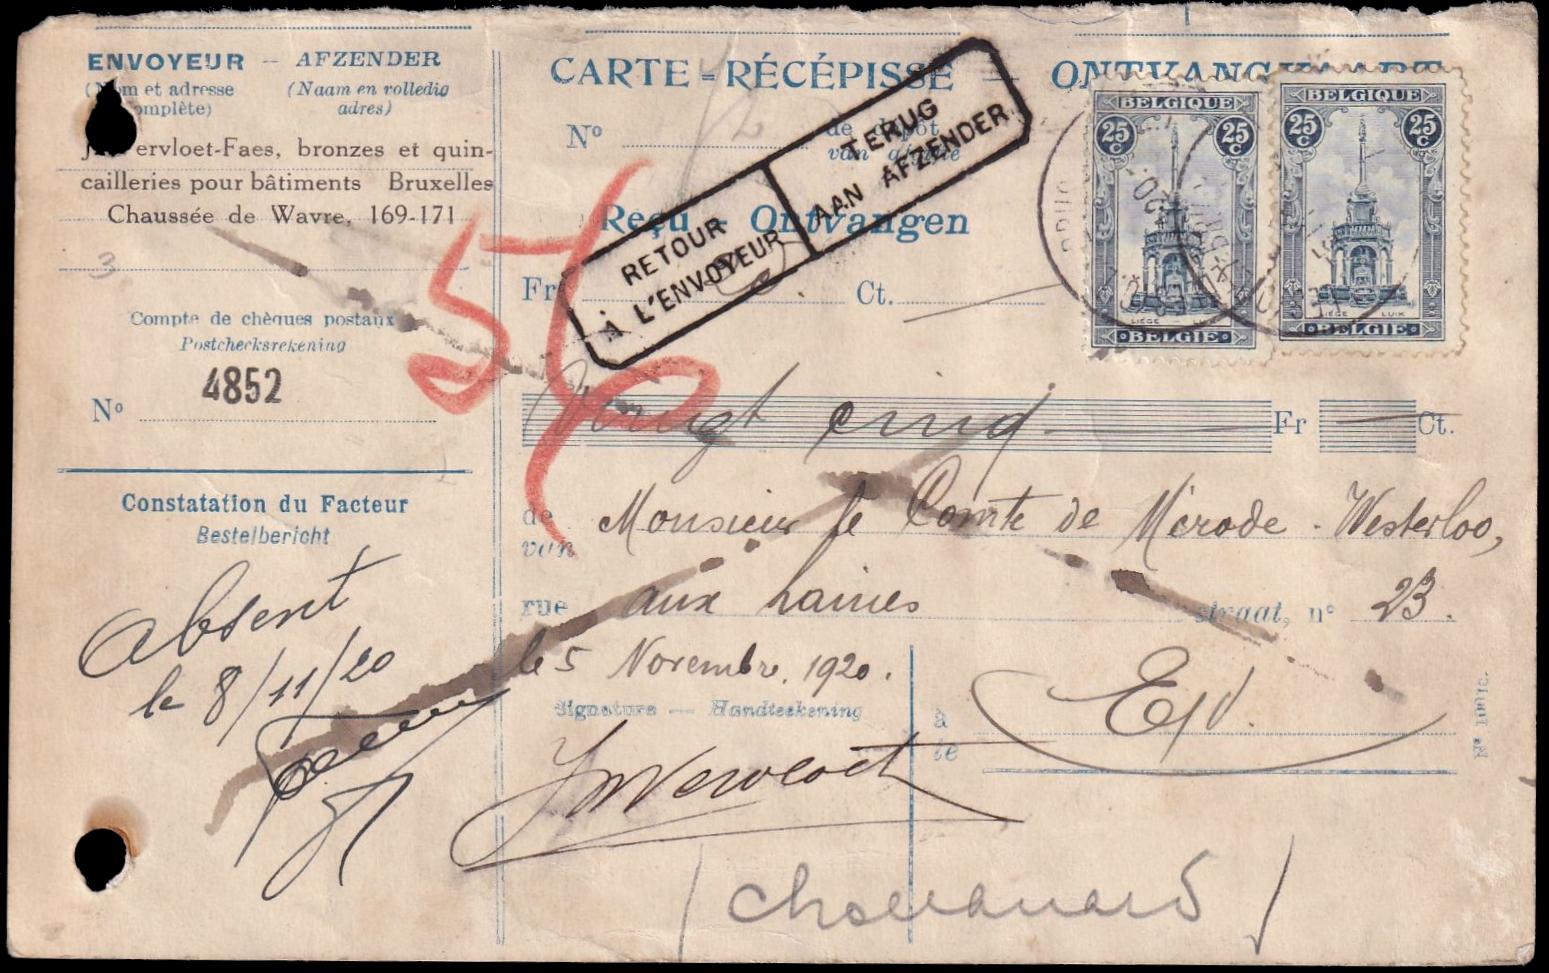 ENVOYEUR – AFZENDER
et adresse (Naam en volledig
adres)
ervloet-Faes, bronzes et quin-
cailleries pour bâtiments Bruxelles
Chaussée de Wavre, 169-171
3
Compte de chèques postaux
Postcheckrekening
4852
Nº
Constatation du Facteur
Bestelbericht
Absent
le 8/11/20
CARTE-RÉCÉPISSÉ — ONTVANGKAART
Nº de dépôt
van afgifte
RETOUR
A L'ENVOYEUR
TERUG
AAN AFZENDER
56
Reçu - Ontvangen
Fr Ct.
BELGIQUE
25 C 25 C
LIÈGE LUIK
BELGIE
BELGIQUE
25 C 25 C
LIÈGE LUIK
BELGIE
Vingt cinq Fr Ct.
de Monsieur le Comte de Mérode-Westerloo,
van
rue aux Laines straat, nº 23.
le 5 Novembr. 1920.
Signature — Handteekening
à E/V.
te